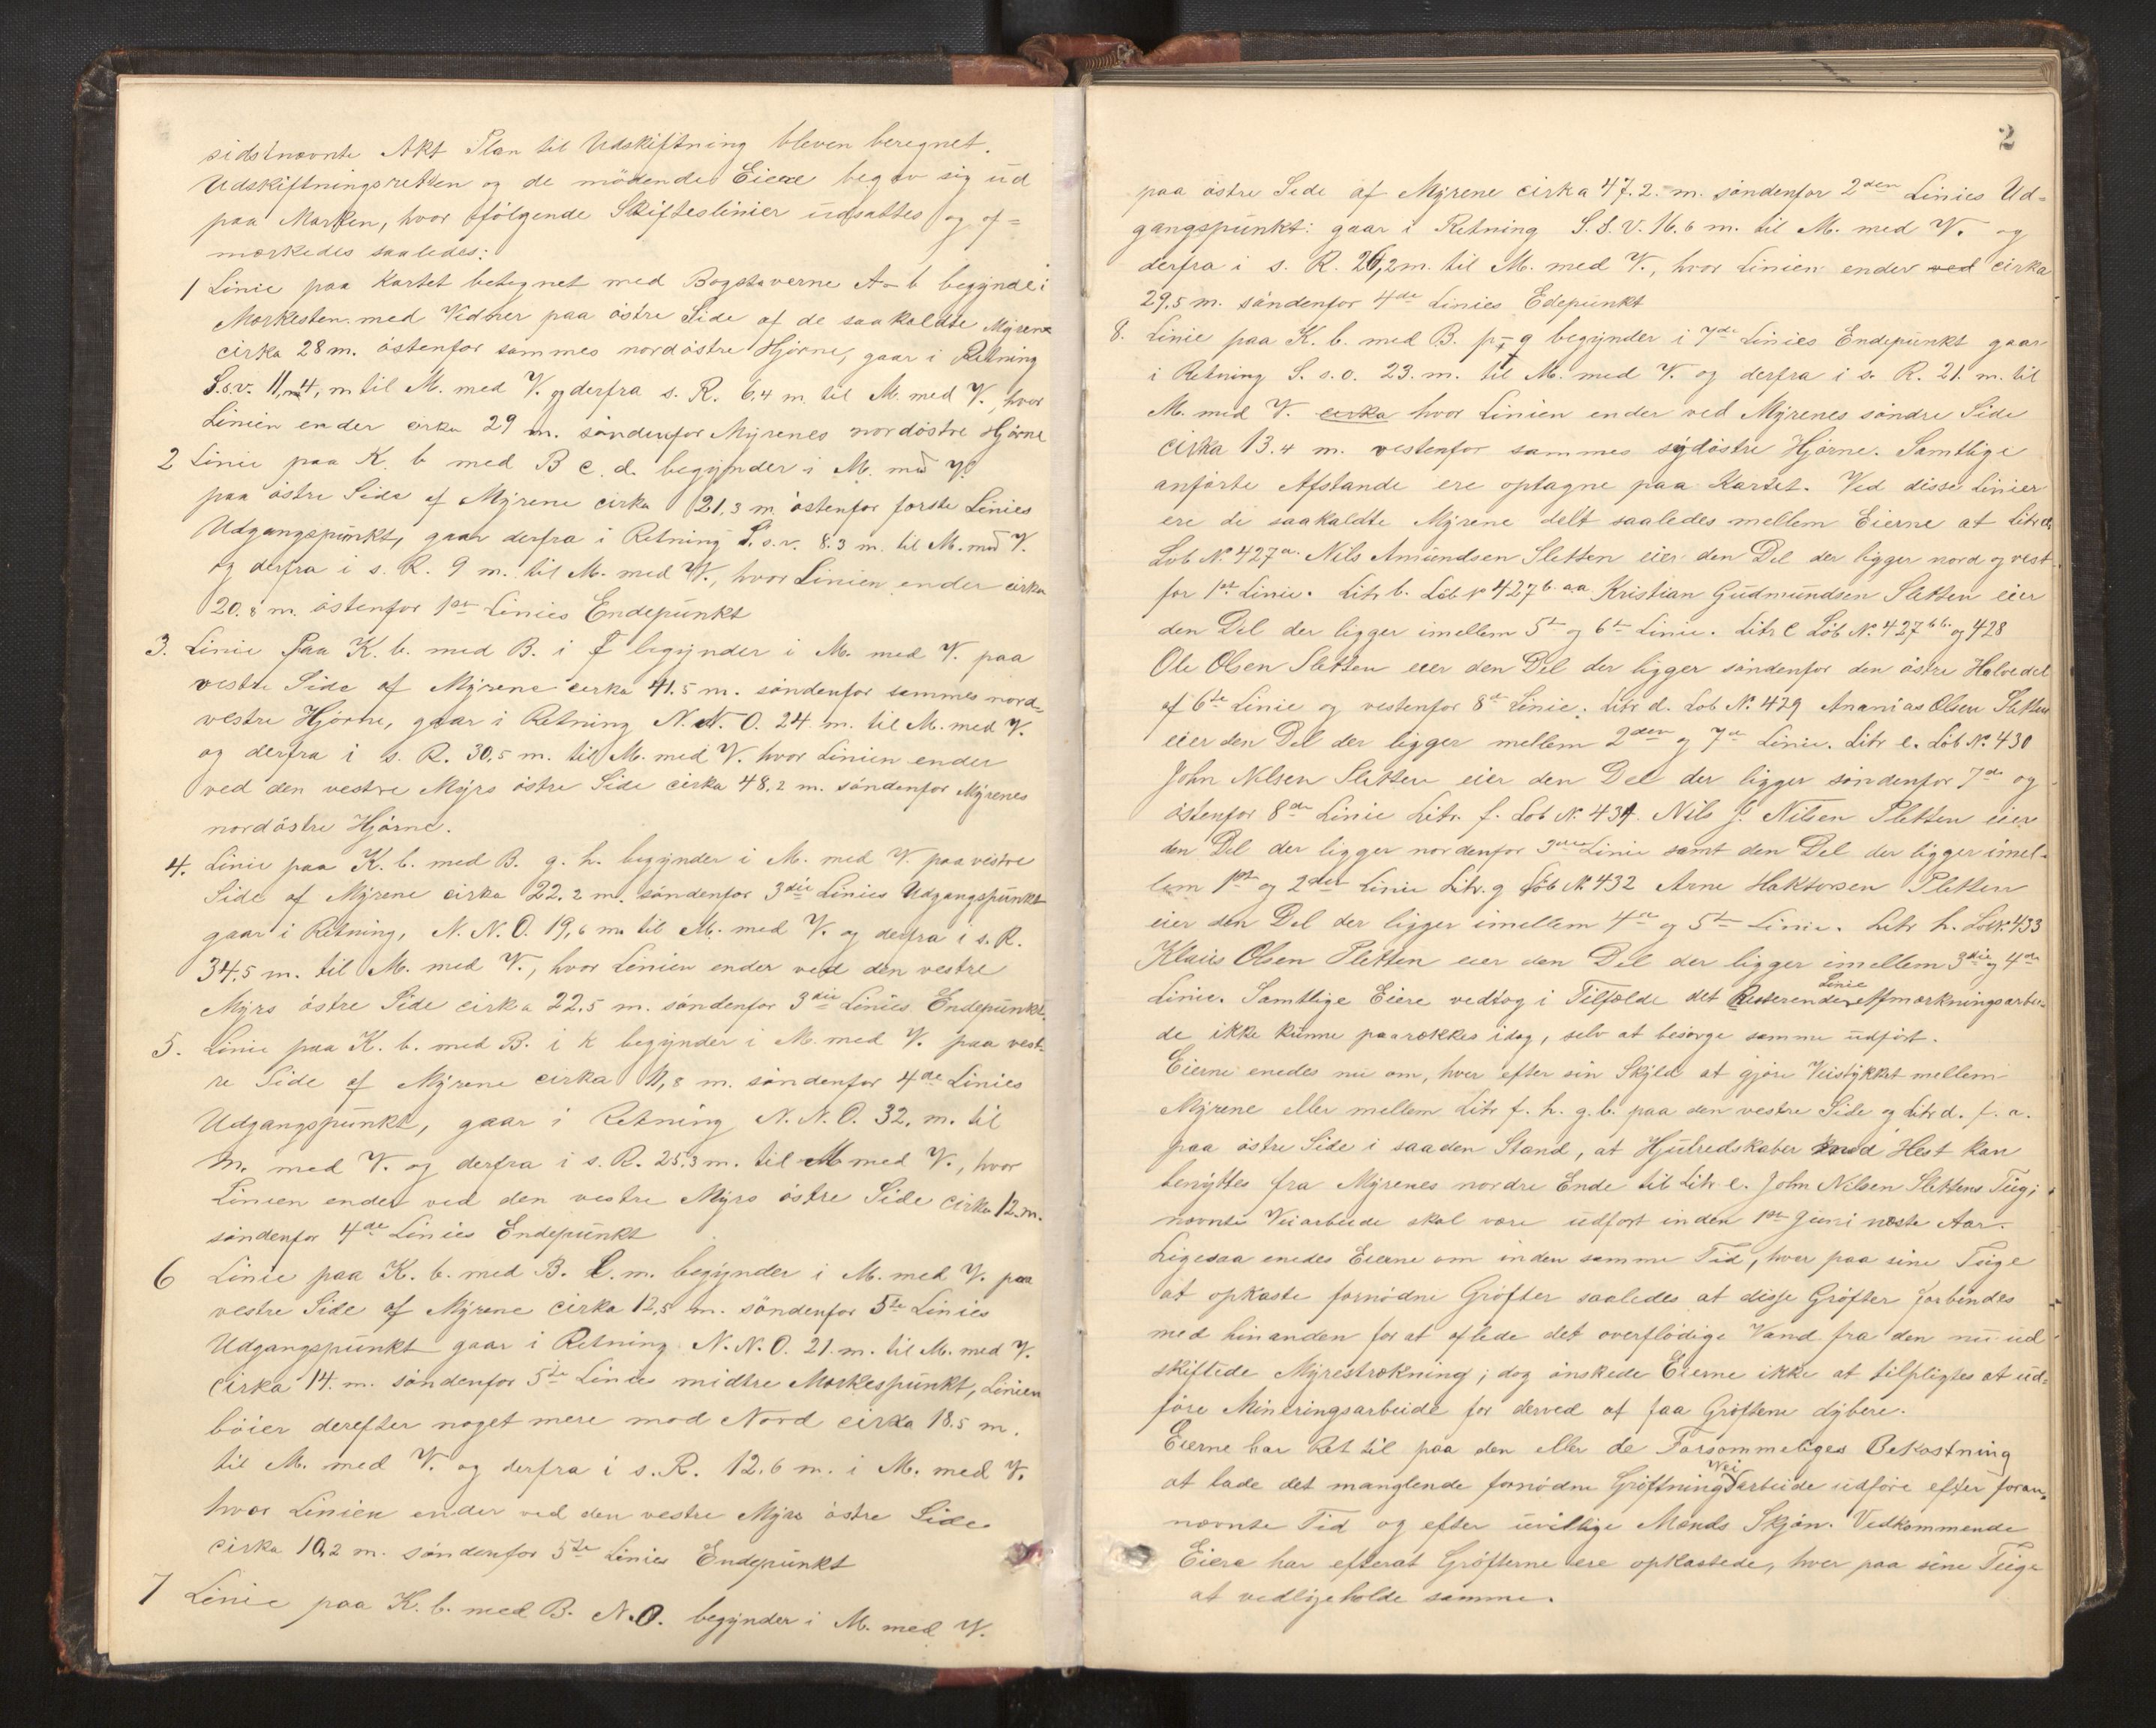 sidstnævnte Akt Plan til Udskiftning bleven beregnet.
Udskiftningsretten og de mödende Eiere begav sig ud
paa Marken, hvor fölgende Skifteslinier udsattes og af=
mærkedes saaledes:
1 Linie paa Kartet betegnet med Bogstaverne A-b begynder i
Mærkesten med Vidner paa östre Side af de saakaldte Myrene
cirka 28 m. östenfor sammes nordöstre Hjörne, gaar i Retning
S.s.v. 11,4, m til M. med V. og derfra s. R. 6,4 m. til M. med V., hvor
Linien ender cirka 29 m. söndenfor Myrenes nordöstre Hjörne
2 Linie paa K. b med B c. d. begynder i M. med V.
paa östre Side af Myrene cirka 21,3 m. östenfor forste Linies
Udgangspunkt, gaar derfra i Retning S.s.v. 8.3 m. til M. med V.
og derfra i s. R. 9 m. til M. med V., hvor Linien ender cirka
20.8 m. östenfor 1ste Linies Endepunkt
3. Linie paa K. b. med B. i f begynder i M. med V. paa
vestre Side af Myrene cirka 41.5 m. söndenfor sammes nord-
vestre Hjörne, gaar i Retning N. N. O. 24 m. til M. med V.
og derfra i s. R. 30,5 m. til M. med V. hvor Linien ender
ved den vestre Myrs östre Side cirka 48,2 m. söndenfor Myrenes
nordöstre Hjörne.
4. Linie paa K. b. med B. g. h. begynder i M. med V. paa vestre
Side af Myrene cirka 22.2 m. söndenfor 3die Linies Udgangspunkt
gaar i Retning, N. N. O. 19,6 m. til M. med V. og derfra i s. R.
34.5 m. til M. med V., hvor Linien ender ved den vestre
Myrs östre Side cirka 22.5 m. söndenfor 3die Linies Endepunkt.
5. Linie paa K. b. med B. i k begynder i M. med V. paa vest-
re Side af Myrene cirka 11,8 m. söndenfor 4de Linies
Udgangspunkt, gaar i Retning N. N. O. 32. m. til
M. med V. og derfra i s. R. 25.3 m. til M med V., hvor
Linien ender ved den vestre Myrs östre Side cirka 12. m.
söndenfor 4de Linies Endepunkt
6 Linie paa K. b. med B. l. m. begynder i M. med V. paa
vestre Side af Myrene cirka 12,5 m. söndenfor 5te Linies
Udgangspunkt gaar i Retning N. N. O. 21. m. til M. med V.
cirka 14. m. söndenfor 5te Linies midtre Mærkespunkt, Linien
böier derefter noget mere mod Nord cirka 18.5 m.
til M. med V. og derfra i s. R. 12.6 m. i M. med V.
hvor Linien ender ved den vestre Myrs östre Side
cirka 10,2 m. söndenfor 5te Linies Endepunkt
7 Linie paa K. b. med B. N. O. begynder i M. med V.
2
paa östre Side af Myrene cirka 47.2. m. söndenfor 2den Linies Ud=
gangspunkt: gaar i Retning S. S. V. 16.6 m. til M. med V. og
derfra i s. R. 26,2 m. til M. med V., hvor Linien ender ved cirka
29,5 m. söndenfor 4de Linies Edepunkt
8. Linie paa K. b. med B. p - q begynder i 7de Linies Endepunkt gaar
i Retning S. s. o. 23. m. til M. med V. og derfra i s. R. 21. m. til
M. med V. cirka hvor Linien ender ved Myrenes söndre Side
cirka 13.4 m. vestenfor sammes sydöstre Hjörne. Samtlige
anförte Afstande ere optagne paa Kartet. Ved disse Linier
ere de saakaldte Myrene delt saaledes mellem Eierne at Litr a.
Löb No 427a. Nils Amundsen Sletten eier den Del der ligger nord og vest
for 1ste Linie. Litr b. Löb No 427b. aa. Kristian Gudmundsen Sletten eier
den Del der ligger imellem 5te og 6te Linie. Litr c Löb No. 427bb. og 428
Ole Olsen Sletten eier den Del der ligger söndenfor den östre Halvedel
af 6te Linie og vestenfor 8de Linie. Litr d. Löb No. 429 Ananias Olsen Sletten
eier den Del der ligger mellem 2den og 7de Linie. Litr e. Löb No. 430
John Nilsen Sletten eier den Del der ligger söndenfor 7de og
östenfor 8de Linie Litr. f. Löb No. 431. Nils J. Nilsen Sletten eier
den Del der ligger nordenfor 3die Linie samt den Del der ligger imel-
lem 1ste og 2den Linie Litr. g Löb No. 432 Arne Haktorsen Sletten
eier den Del der ligger imellem 4de og 5te Linie. Litr h. Löb No. 433
Klaus Olsen Sletten eier den Del der ligger imellem 3die og 4de
Linie. Samtlige Eiere vedtog i Tilfælde det Resterende Linie Afmærkningsarbei-
de ikke kunne paarækkes idag, selv at besörge samme udfört.
Eierne enedes nu om, hver efter sin Skyld at gjöre Veistykket mellem
Myrene eller mellem Litr f. h. g. b. paa den vestre Side og Litr d. f. a.
paa östre Side i saaden Stand, at Hjulredskaber med Hest kan
benyttes fra Myrenes nordre Ende til Litr e. John Nilsen Slettens Teig;
nævnte Veiarbeide skal være udfört inden 1ste Juni næste Aar.
Ligesaa enedes Eierne om inden samme Tid, hver paa sine Teige
at opkaste fornödne Gröfter saaledes at disse Gröfter forbindes
med hinanden for at aflede det overflödige Vand fra den nu ud
skiftede Myrestrækning; dog önskede Eierne ikke at tilpligtes at ud=
före Mineringsarbeide for derved at faa Gröftene dybere.
Eierne har Ret til paa den eller de Forsömmeliges Bekostning
at lade det manglende fornödne Gröftnings Vei arbeide udföre efter foran-
nævnte Tid og efter uvillige Mænds Skjön. Vedkommende
Eiere har efterat Gröfterne ere opkastede, hver paa sine Teige
at vedligeholde samme.